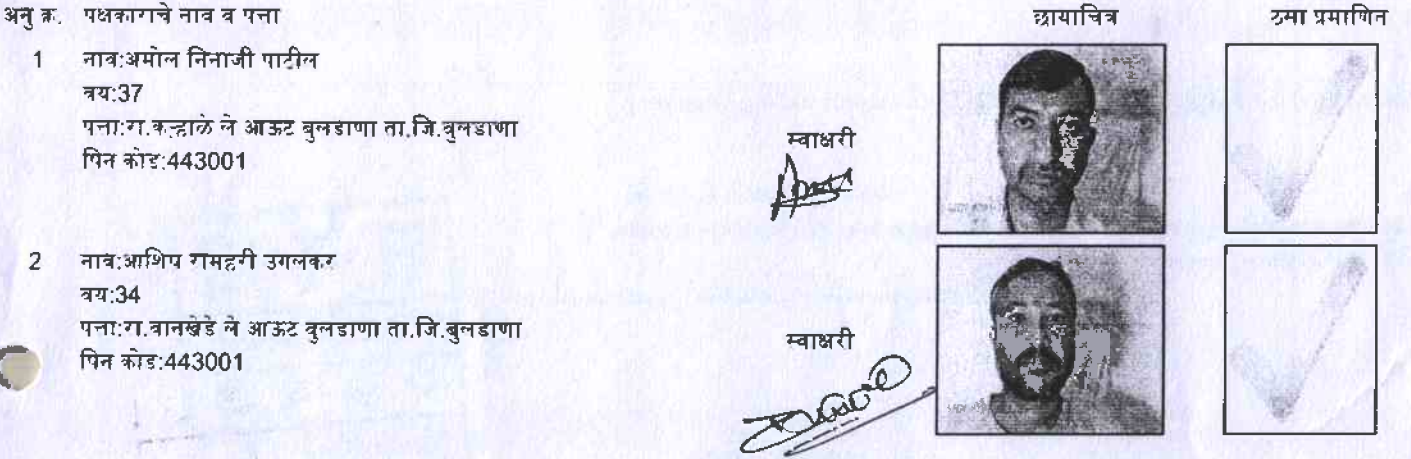 अनु क्र. पक्षकाराचे नाव व पत्ता छायाचित्र ठसा प्रमाणित
1 नाव:अमोल निनाजी पाटील
वय:37
पत्ता:रा.कऱ्हाळे ले आऊट बुलडाणा ता.जि.बुलडाणा
पिन कोड:443001
स्वाक्षरी
2 नाव:आशिष रामहरी उगलकर
वय:34
पत्ता:रा.वानखेडे ले आऊट बुलडाणा ता.जि.बुलडाणा
पिन कोड:443001
स्वाक्षरी